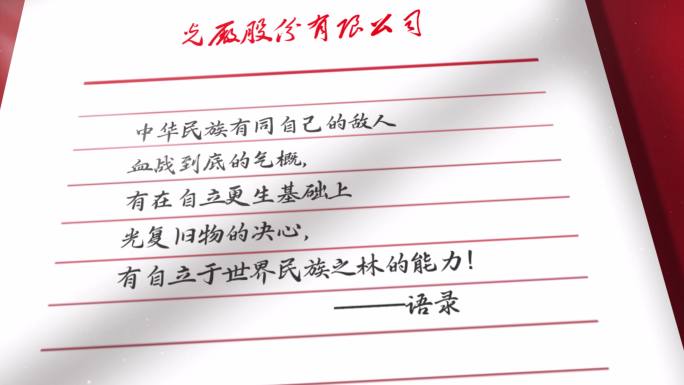 光厰股份有限公司
中华民族有同自己的敌人
血战到底的气概，
有在自立更生基础上
光复旧物的决心，
有自立于世界民族之林的能力！
——语录